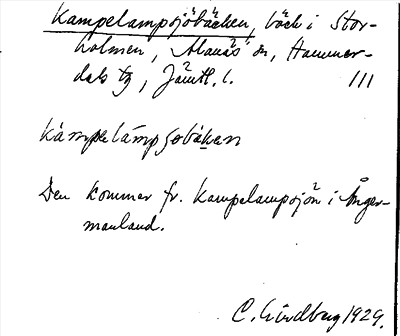 Kampelampsjöbäcken, bäck i Stor-
holmen, Alanäs sn, Hammer-
dals tg, Jämtl. l. III
kámpelámpsjobäkan
Den kommer fr. Kampelampsjön i Ånger-
manland.
C. Lindberg 1929.